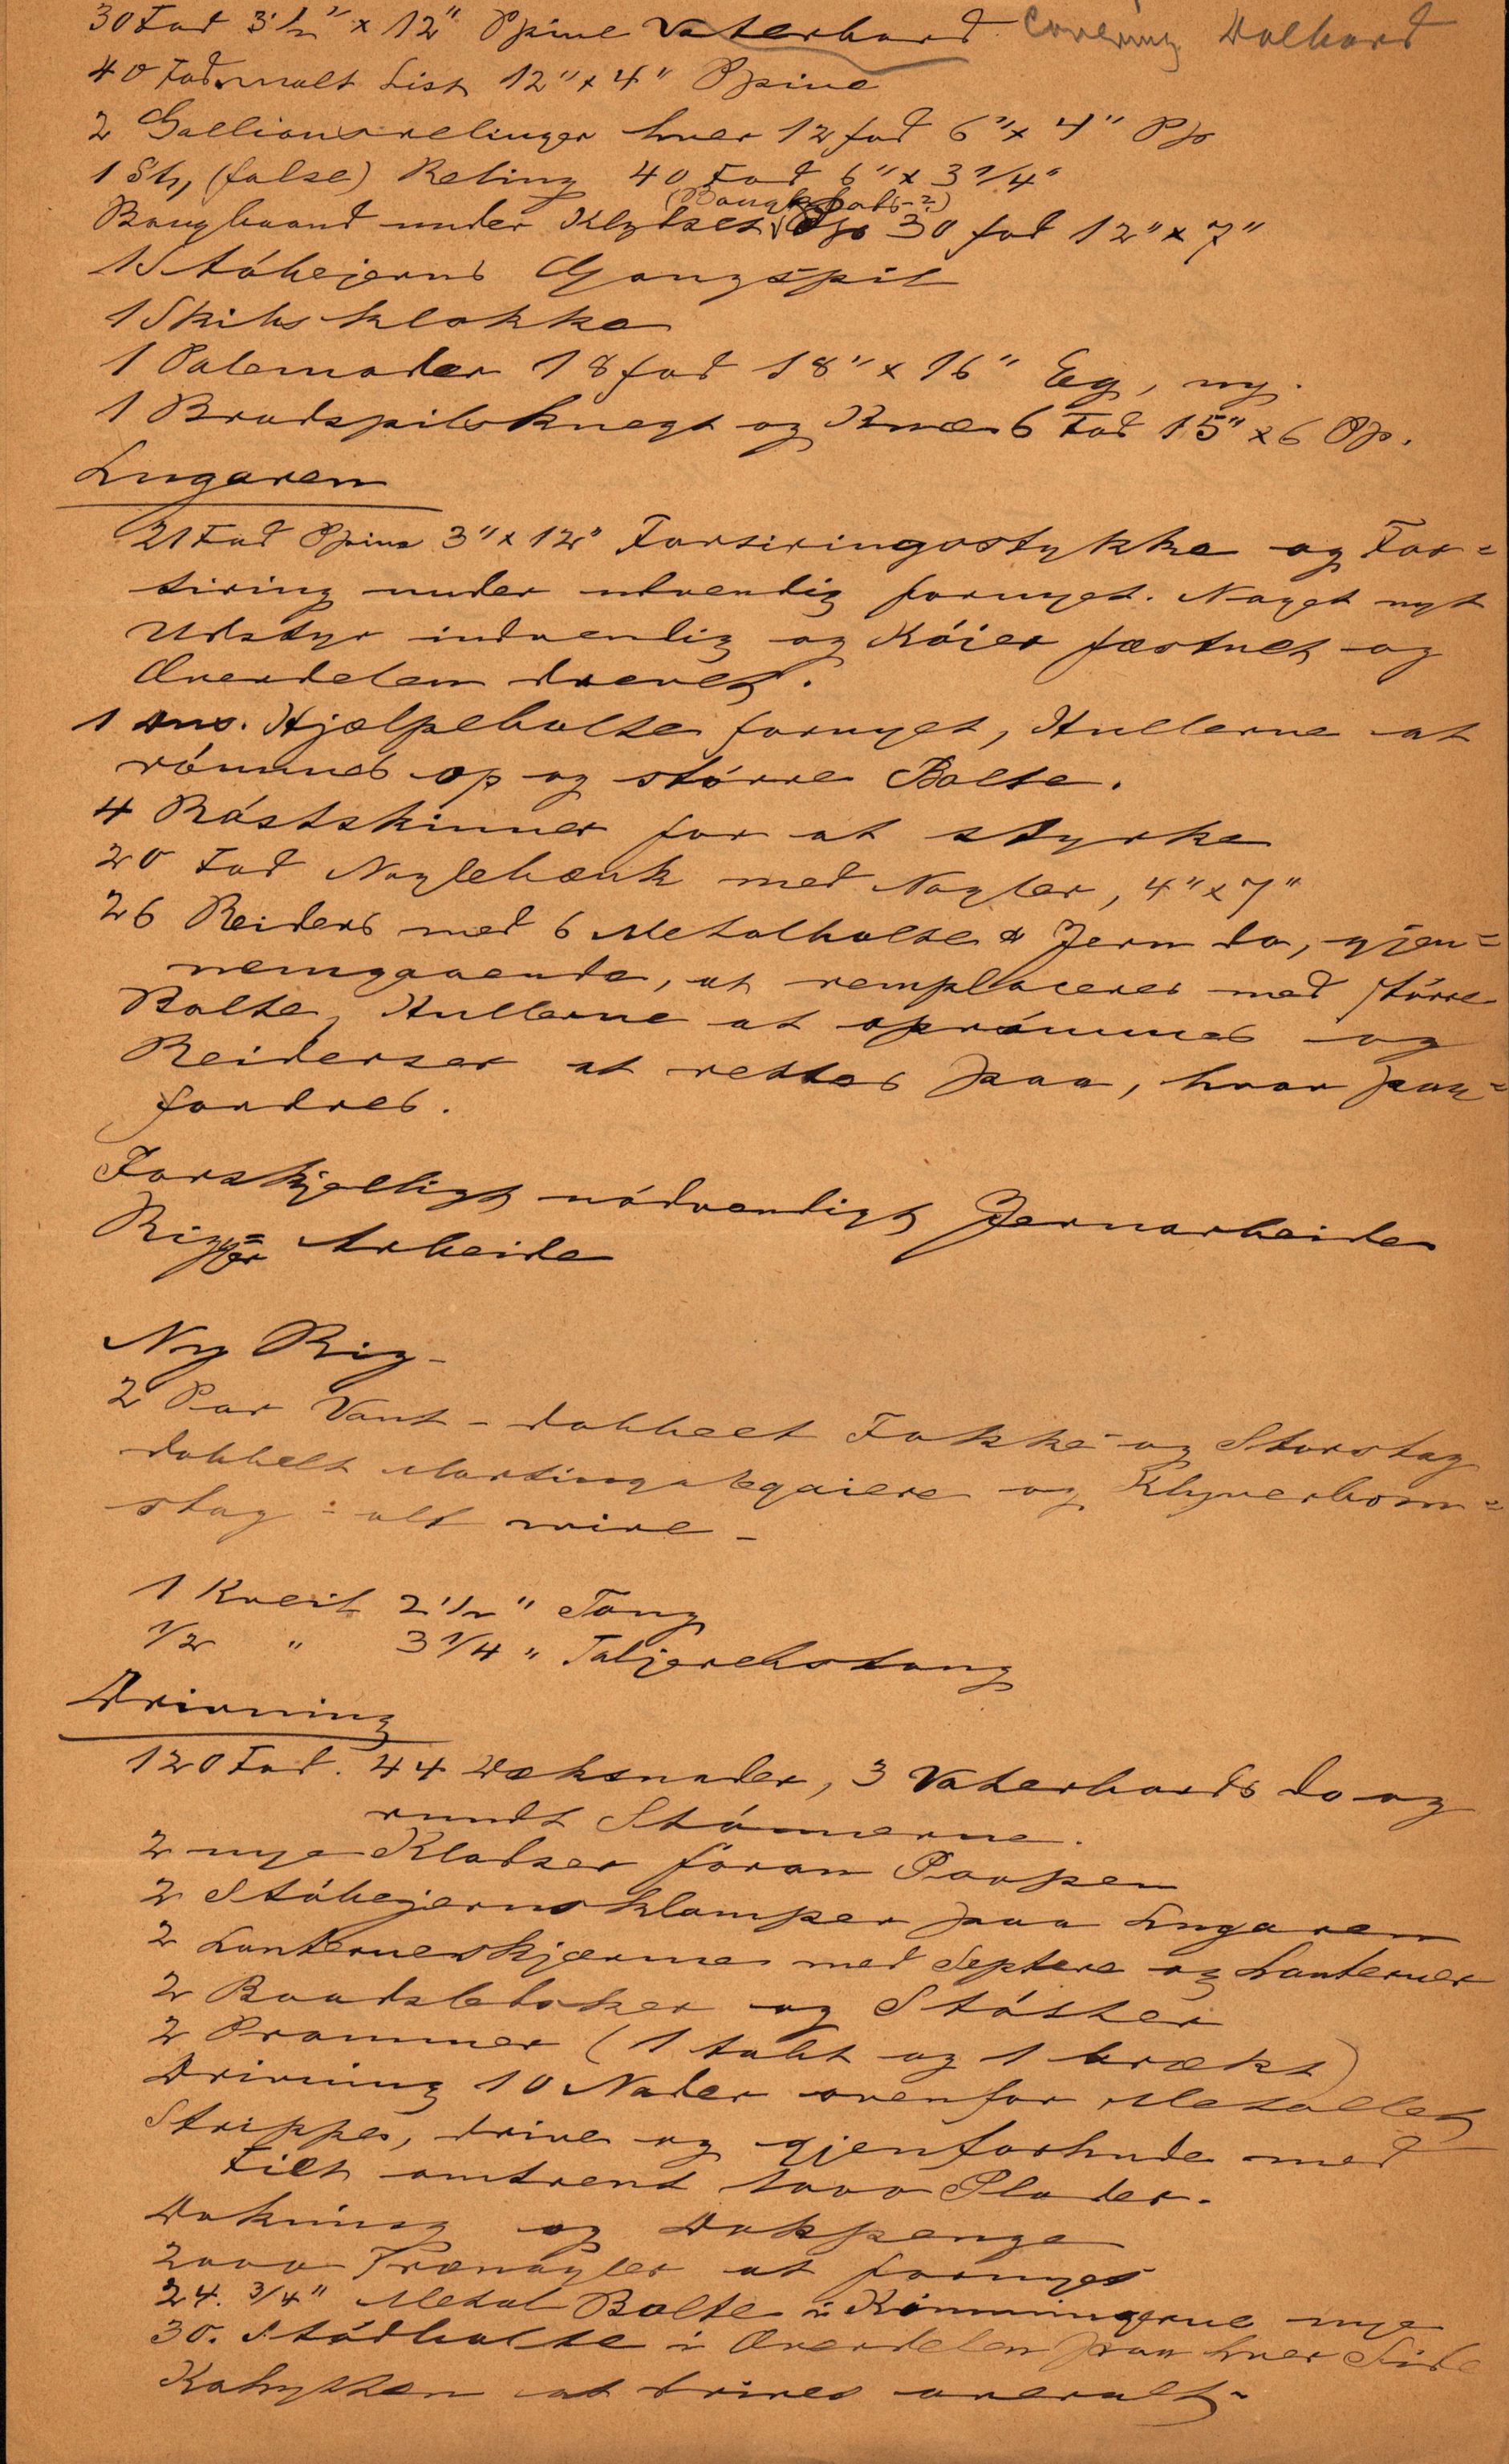 30 Fod 3 1/2" x 12" Ppine Vaterbord Covering Dolbord
40 Fod smalt List 12" x 4" Ppine
2 Gallionsrelinger hver 12 fod 6" x 4" Pp
1 Stk, (false) Reling 40 Fod 6" x 3 1/4"
Bougbaand under Klydset Pp 30 fod 12" x 7"
1 Stöbejerns Gangspil
1 Skibsklokke
1 Palemader 18 fod 18" x 16" Eg, ny.
1 Bradspilsknegt og Knæ 6 Fod 15" x 6 Pp.
Lugaren
21 Fod Ppine 3" x 12" Forsiringsstykke og For=
siring under udvendig fornyet. Noget nyt
Udstyr indvendig og Köier fæstnet og
Överdelen drevet.
1 Dus. Hjælpebolte fornyet, Hullerne at
römmes op og större Bolte.
4 Röstskinner for at styrke
20 Fod Naglebænk med Nagler, 4" x 7"
26 Reiders med 6 Metalbolte & Jern do, gjen=
nemgaaende, at remplaceres med större
Bolte, Hullerne at oprömmes og
Reiderser at rettes paa, hvor paa=
fordres.
Forskjelligt nödvendigt Jernarbeide
Rigger= Arbeide
Ny Rig-
2 Par Vant - dobbelt Fokke- og Storstag
dobbelt Martingalegaiere og Klyverbom=
stag - alt wire -
1 Kveil 2 1/2" Toug
1/2 " 3 1/4" Taljerebstoug
Drivning
120 Fod. 44 Dæksnader, 3 Vaterbords do og
rundt Stönnerne.
2 nye Klodser foran Poopen
2 Stöbejernsklamper paa Lugaren
2 Lanterneskjærme med Septere og Lanterner
2 Baadsletsker og Stötter
2 Prammer (1 tabt og 1 brækt)
Drivning 10 Nader ovenfor Metallet
Strippe, drive og gjenforhude med
Filt omtrent 1000 Plader.
Dokning og Dokpenge
2000 Trænagler at fornyes
24. 3/4" Metal Bolte i Kimmingerne nye
30. Stödbolte i Överdelen paa hver Side
Kahytten at drives overalt-